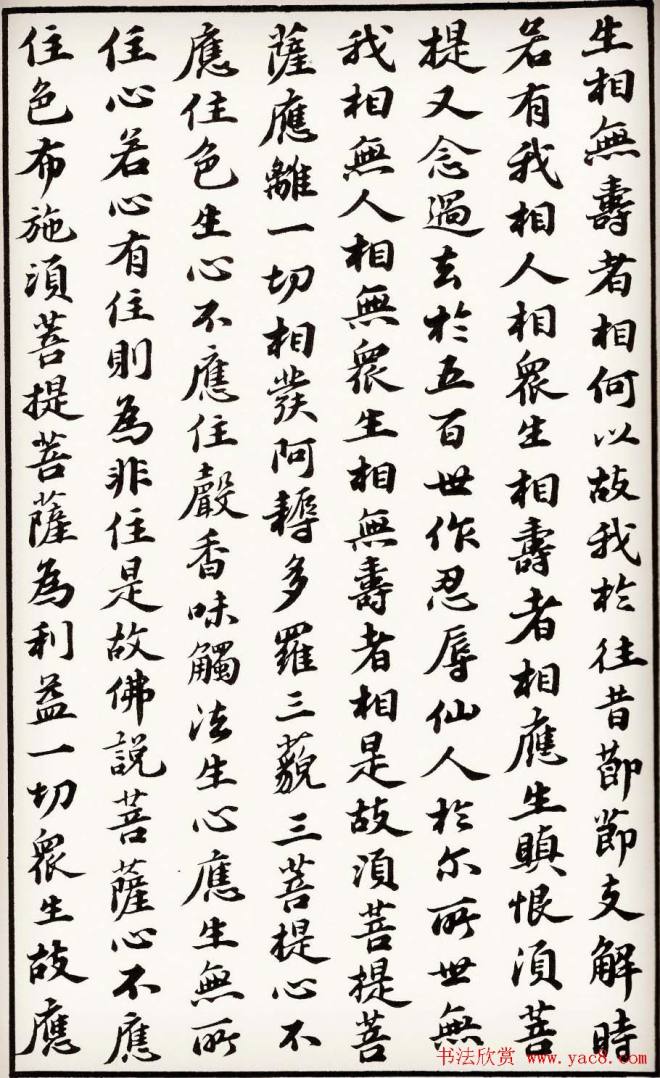 生相無壽者相何以故我於往昔節節支解時
若有我相人相眾生相壽者相應生瞋恨須菩
提又念過去於五百世作忍辱仙人於尔所世無
我相無人相無眾生相無壽者相是故須菩提菩
薩應離一切相發阿耨多羅三藐三菩提心不
應住色生心不應住聲香味觸法生心應生無所
住心若心有住則為非住是故佛說菩薩心不應
住色布施須菩提菩薩為利益一切眾生故應
书法欣赏 www.yac8.com